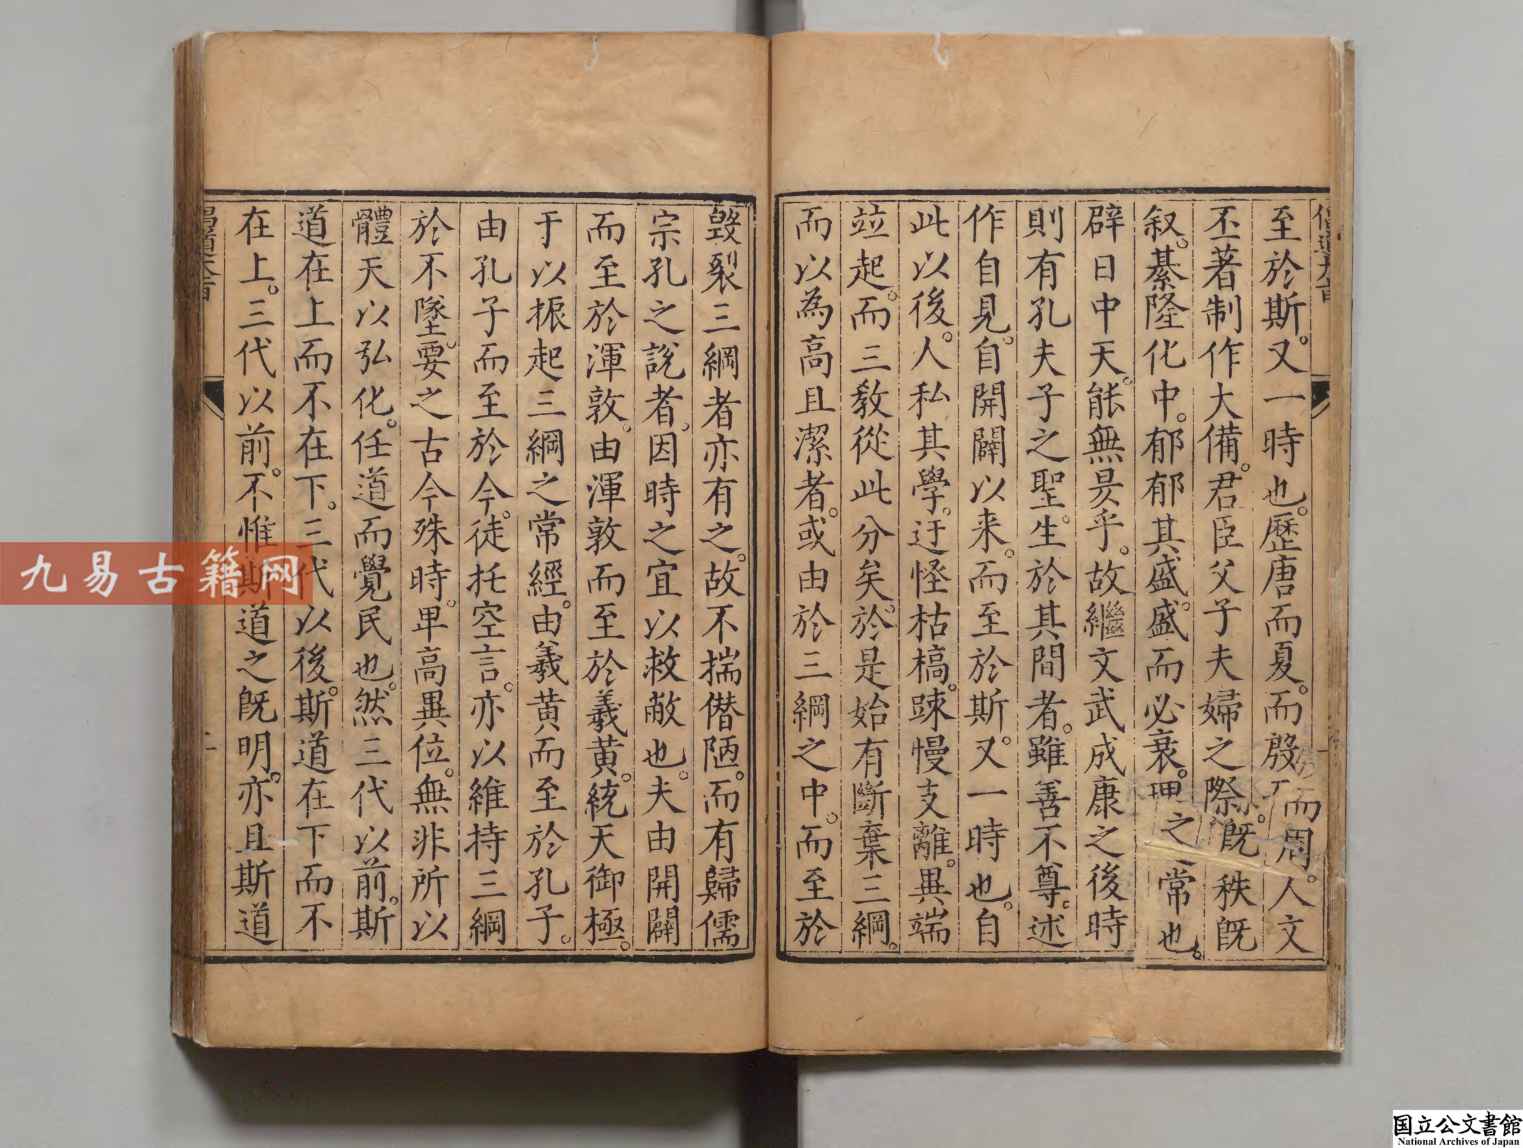 至於斯。又一時也。歷唐而夏。而殷而周。人文
丕著制作大備。君臣父子夫婦之際。既秩既
叙。綦隆化中。郁郁其盛。盛而必衰。理之常也。
辟日中天。能無昃乎。故繼文武成康之後時
則有孔夫子之聖。生於其間者。雖善不尊。述
作自見。自開闢以来。而至於斯。又一時也。自
此以後。人私其學。迂怪枯槁。踈慢支離。異端
竝起。而三教從此分矣。於是始有斷棄三綱。
而以為高且潔者。或由於三綱之中。而至於
毀裂三綱者亦有之。故不揣僭陋。而有歸儒
宗孔之說者。因時之宜以救敝也。夫由開闢
而至於渾敦。由渾敦而至於羲黃。統天御極。
于以振起三綱之常經。由羲黃而至於孔子。
由孔子而至於今。徒托空言。亦以維持三綱
於不墜。要之古今殊時。卑高異位。無非所以
體天以弘化。任道而覺民也。然三代以前。斯
道在上而不在下。三代以後。斯道在下而不
在上。三代以前。不惟斯道之既明。亦且斯道
九易古籍网
国立公文書館
National Archives of Japan